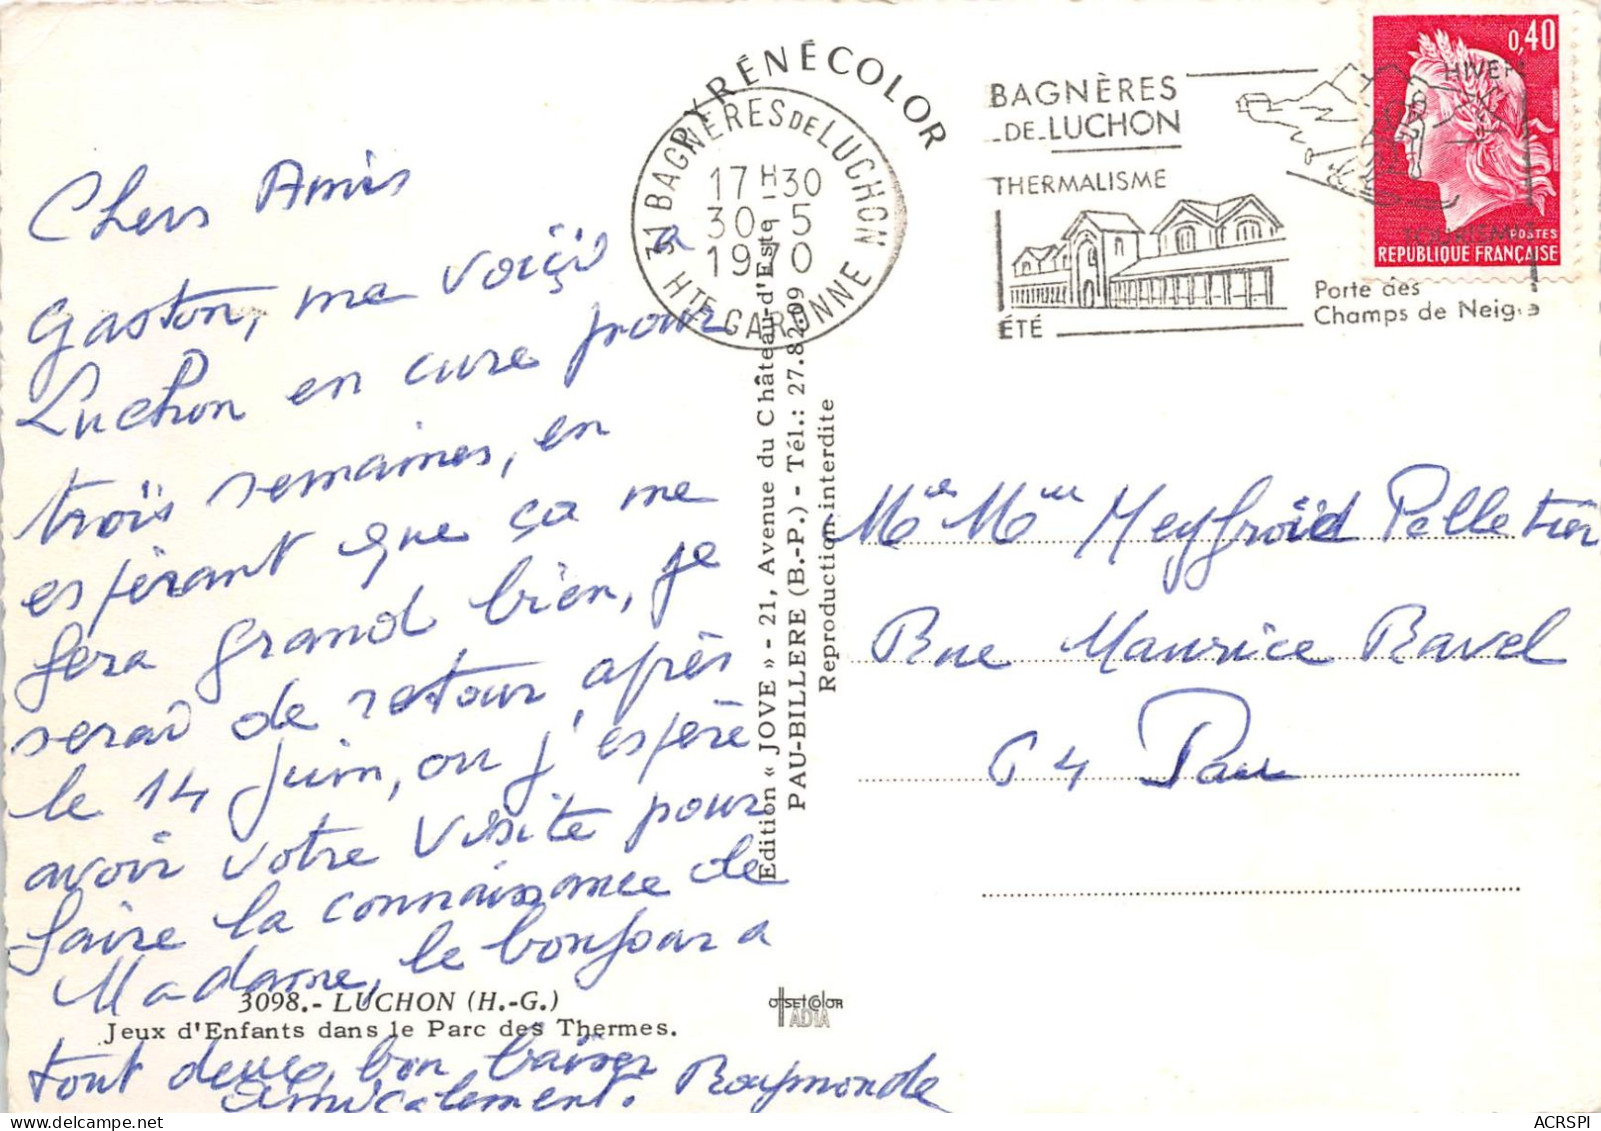 PYRÉNÉCOLOR
31 BAGNÈRES DE LUCHON
17 H 30
30 - 5
1970
HTE GARONNE
BAGNÈRES
DE LUCHON
THERMALISME
ÉTÉ
HIVER
TOURISME
Porte des
Champs de Neige
0,40
POSTES
REPUBLIQUE FRANÇAISE
Chers Amis
Gaston, me voiçi a
Luchon en cure pour
troïs semaines, en
espérant que ça me
fera grand bien, je
serai de retour, après
le 14 Juin, ou j'espère
avoir votre visite pour
faire la connaissance de
Madame, le bonjour a
tout deux, bon baiser
amicalement. Raymonde
Edition « JOVE » - 21, Avenue du Château-d'Este -
PAU-BILLERE (B.-P.) - Tél.: 27.82.09
Reproduction interdite
Mr Mme Meyfroïd Pelletier
Rue Maurice Ravel
64 Pau
3098.- LUCHON (H.-G.)
Jeux d'Enfants dans le Parc des Thermes.
OFFSET COLOR
ADIA
ACRSPI